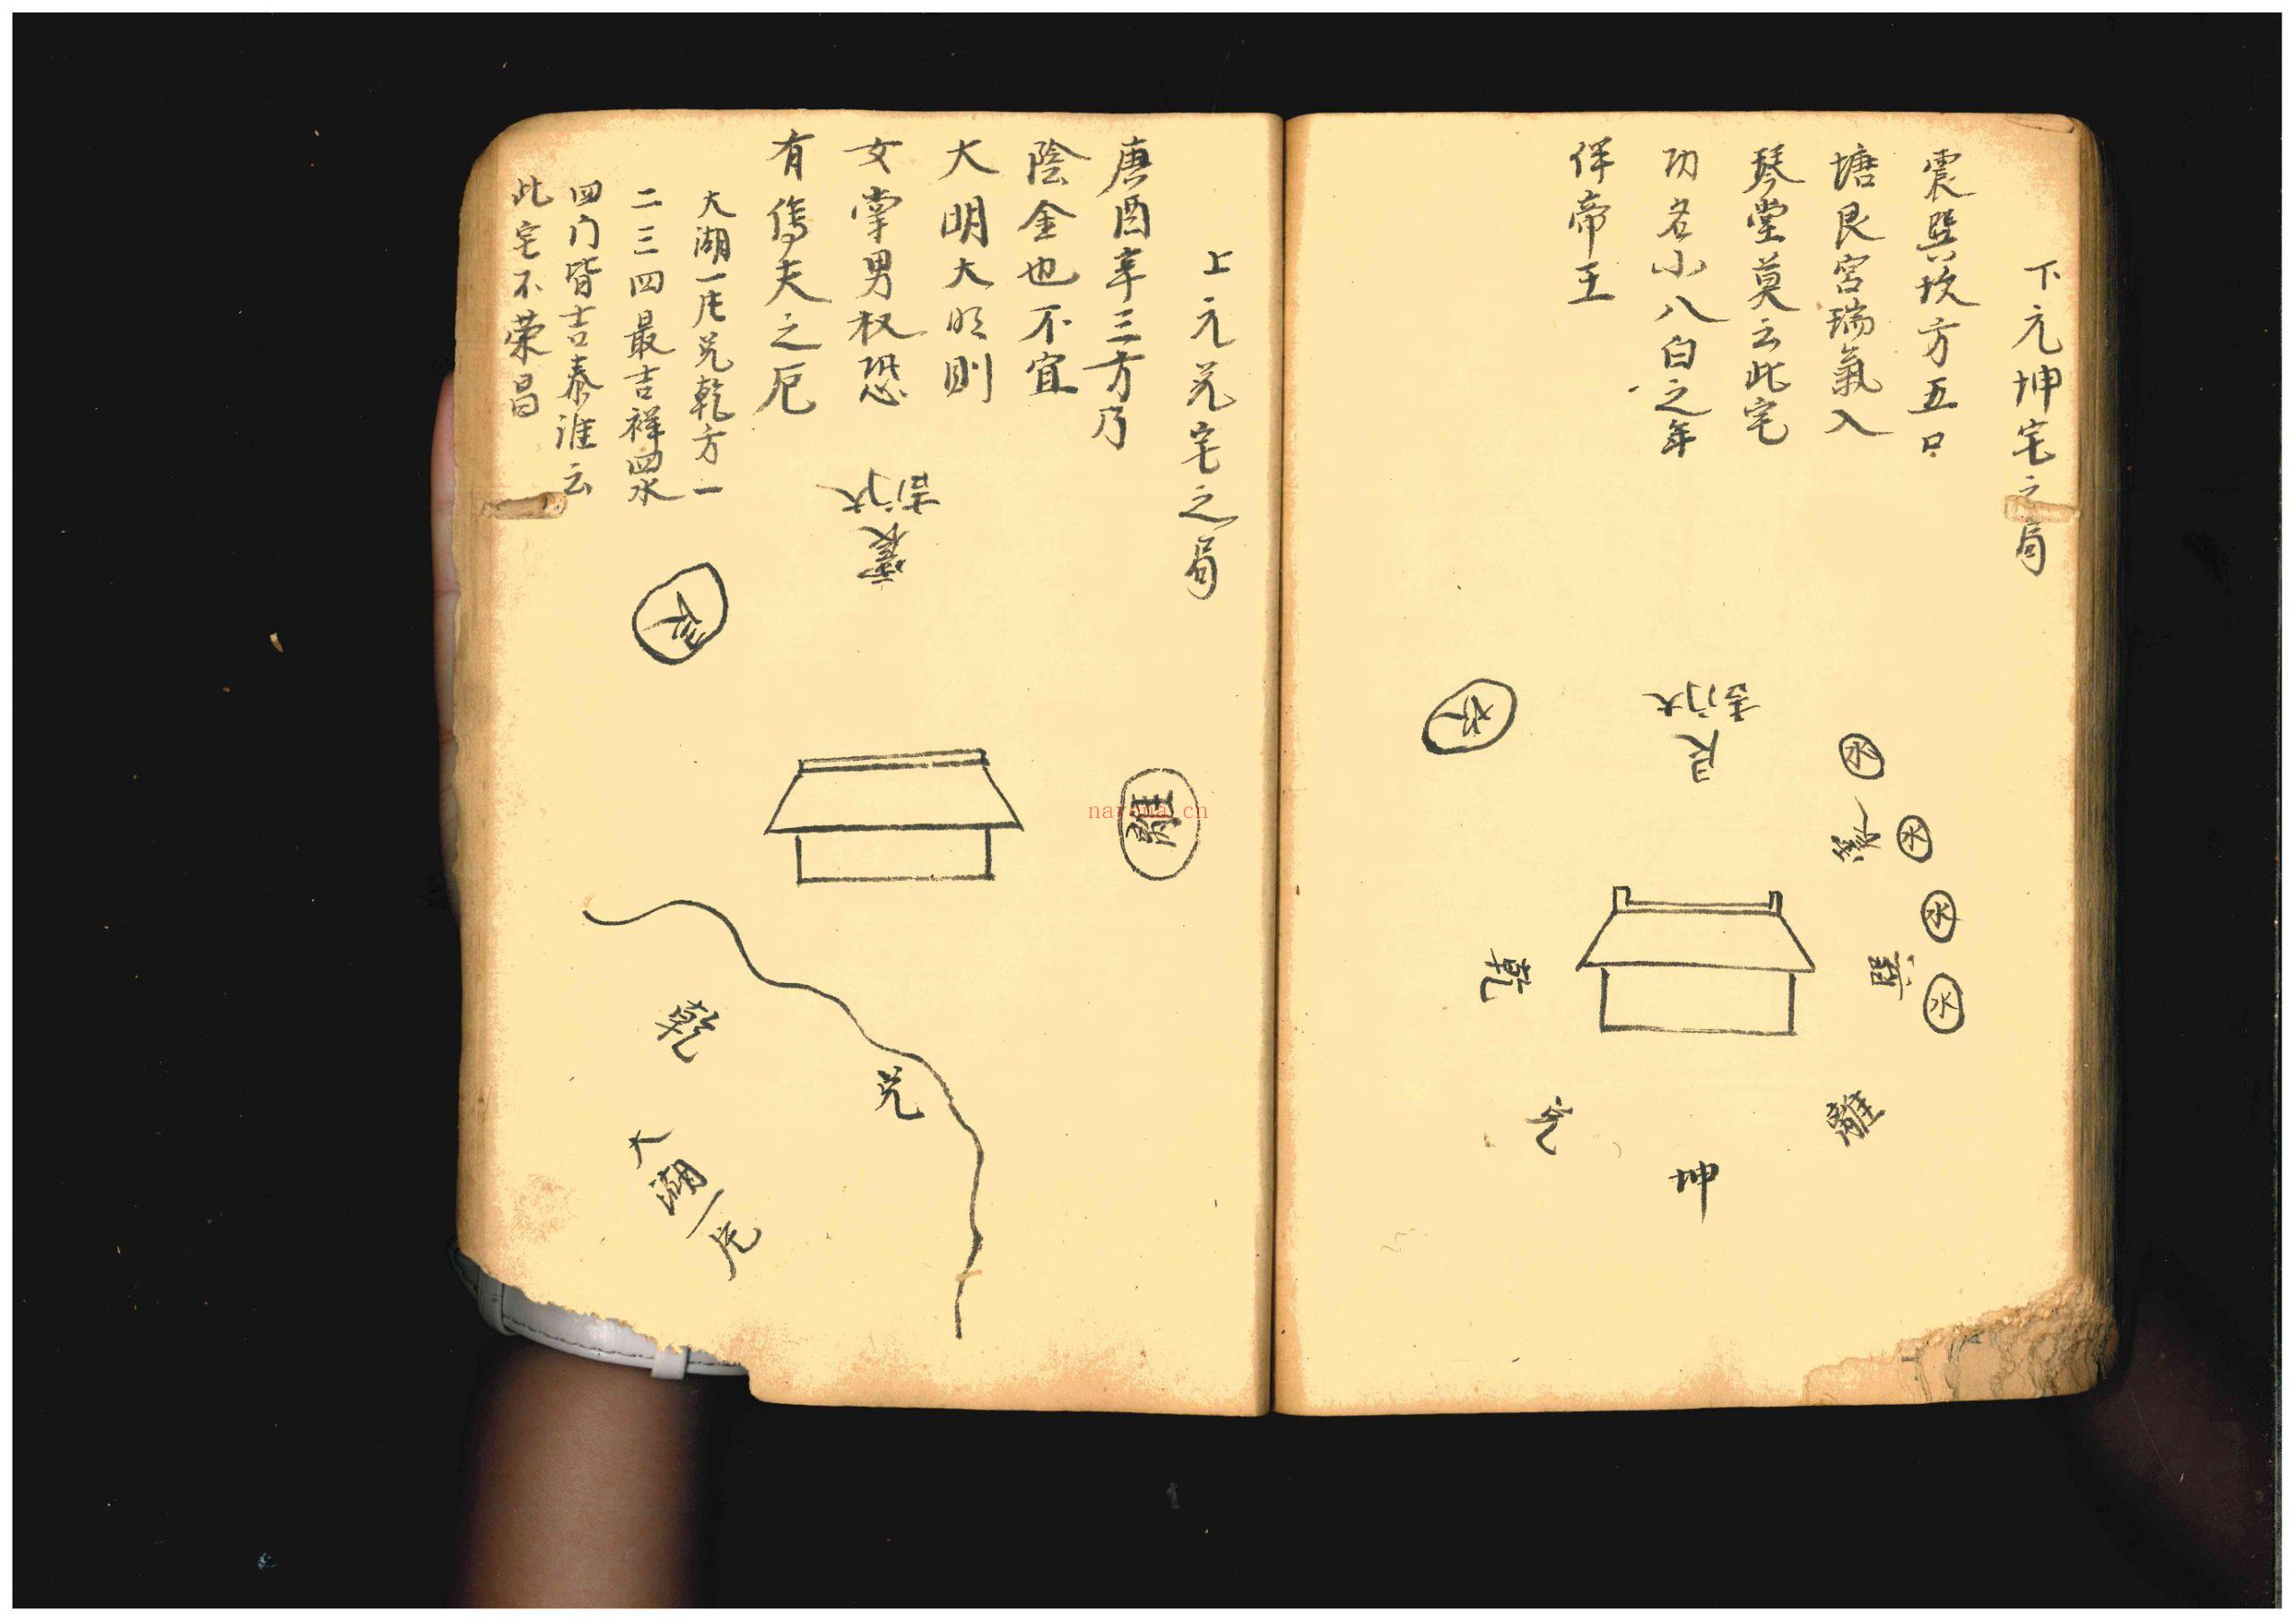 下元坤宅之局
震巽坎方五口
塘艮宮瑞氣入
琴堂莫云此宅
功名小八白之年
伴帝王
水
大门吉
艮
水
水
水
水
乾
巽
離
坤
上元兑宅之局
唐酉辛三方乃
陰金也不宜
大明大明則
女掌男权恐
有傷夫之厄
大湖一片兑乾方一
二三四最吉祥四水
四门皆吉泰誰云
此宅不荣昌
大门吉
震
離
乾
兑
大湖一片
naryana.cn